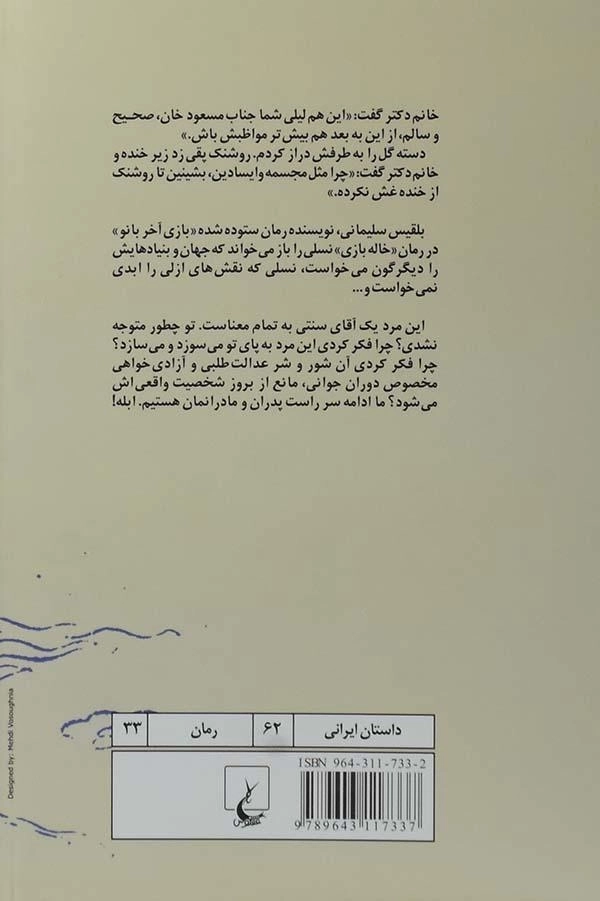 خانم دکتر گفت: «این هم لیلی شما جناب مسعود خان، صحیح
و سالم، از این به بعد هم بیش‌تر مواظبش باش.»
دسته گل را به طرفش دراز کردم. روشنک پقی زد زیر خنده و
خانم دکتر گفت: «چرا مثل مجسمه وایسادین، بشینین تا روشنک
از خنده غش نکرده.»
بلقیس سلیمانی، نویسنده رمان ستوده شده «بازی آخر بانو»
در رمان «خاله بازی» نسلی را باز می‌خواند که جهان و بنیادهایش
را دیگرگون می‌خواست، نسلی که نقش‌های ازلی را ابدی
نمی‌خواست و...
این مرد یک آقای سنتی به تمام معناست. تو چطور متوجه
نشدی؟ چرا فکر کردی این مرد به پای تو می‌سوزد و می‌سازد؟
چرا فکر کردی آن شور و شر عدالت طلبی و آزادی‌خواهی
مخصوص دوران جوانی، مانع از بروز شخصیت واقعی‌اش
می‌شود؟ ما ادامه سر راست پدران و مادرانمان هستیم. ابله!
داستان ایرانی ۶۲ رمان ۳۳
ISBN 964-311-733-2
9 789643 117337
ققنوس
Designed by: Mehdi Vosoughnia